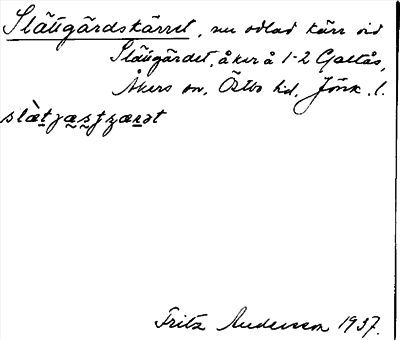 Slättgärdskärret, nu odlad kärr vid
Slättgärdet, åker å 1-2 Galtås,
Åkers sn, Östbo hd. Jönk. l.
Fritz Andersson 1937.